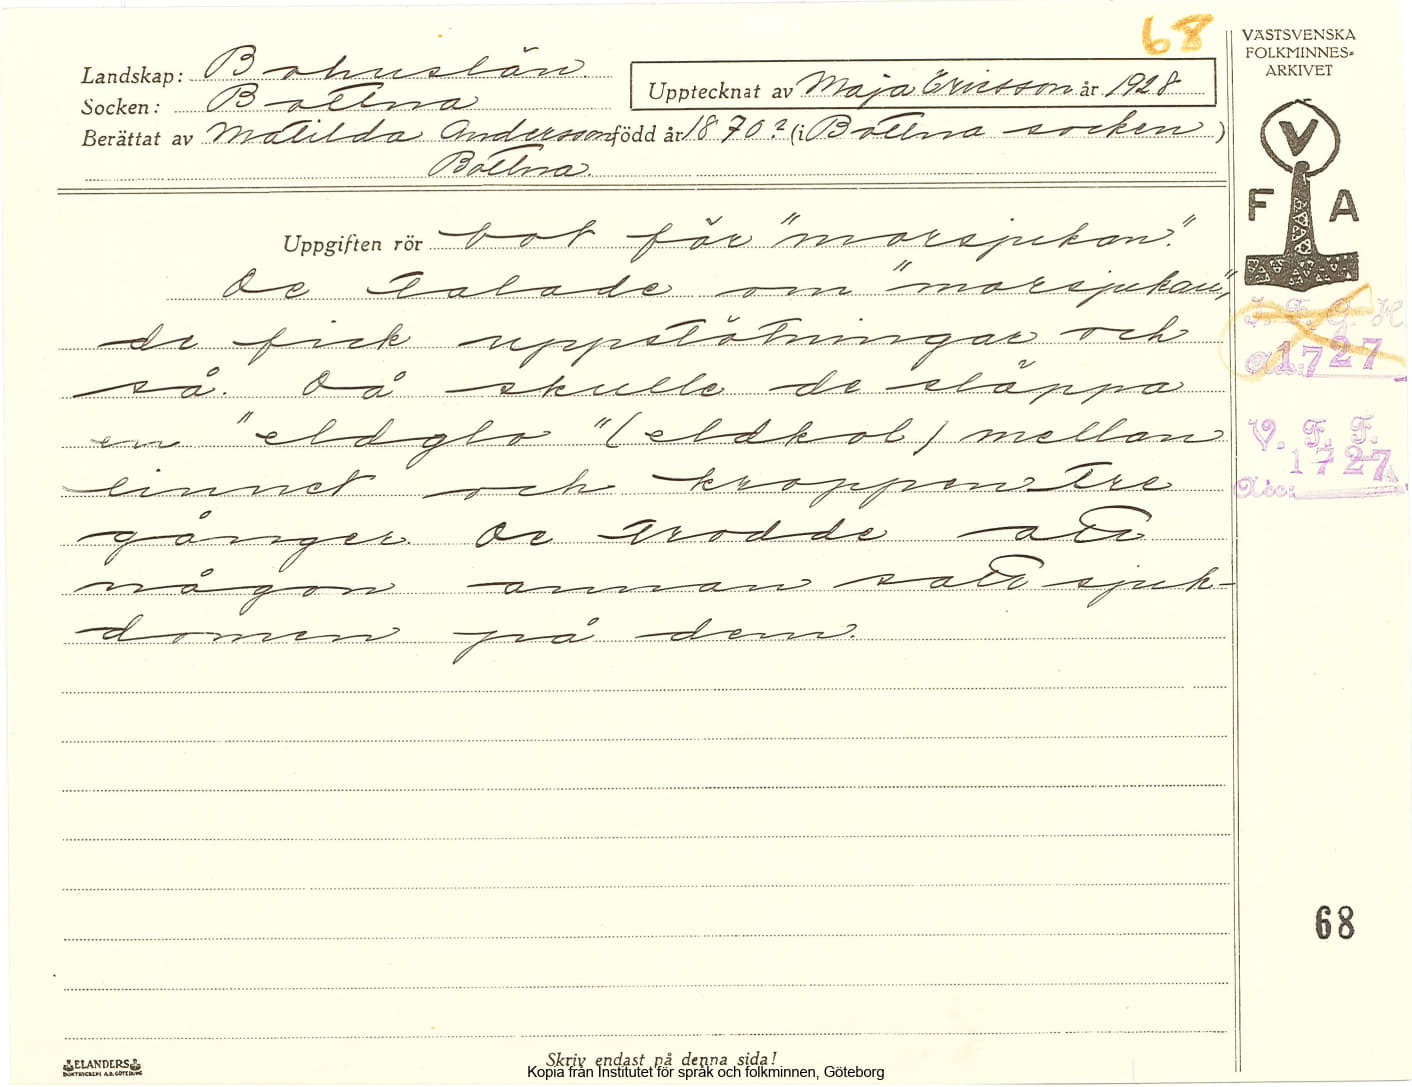 68
VÄSTSVENSKA
FOLKMINNES-
ARKIVET
Landskap: Bohuslän.
Socken: Bottna
Upptecknat av Maja Ericsson år 1928
Berättat av Matilda Andersson född år 1870? (i Bottna socken)
Bottna.
V
F A
Uppgiften rör bot för "morsjukan".
De talade om "morsjukan",
de fick uppstötningar och
så. Då skulle de släppa
en "eldglo" (eldkol) mellan
linnet och kroppen tre
gånger. De trodde att
någon annan satt sjuk-
domen på dem.
I. F. G. H.
1727
V. F. F.
1727
Acc:
68
ELANDERS
BOKTRYCKERI A.B. GÖTEBORG
Skriv endast på denna sida!
Kopia från Institutet för språk och folkminnen, Göteborg